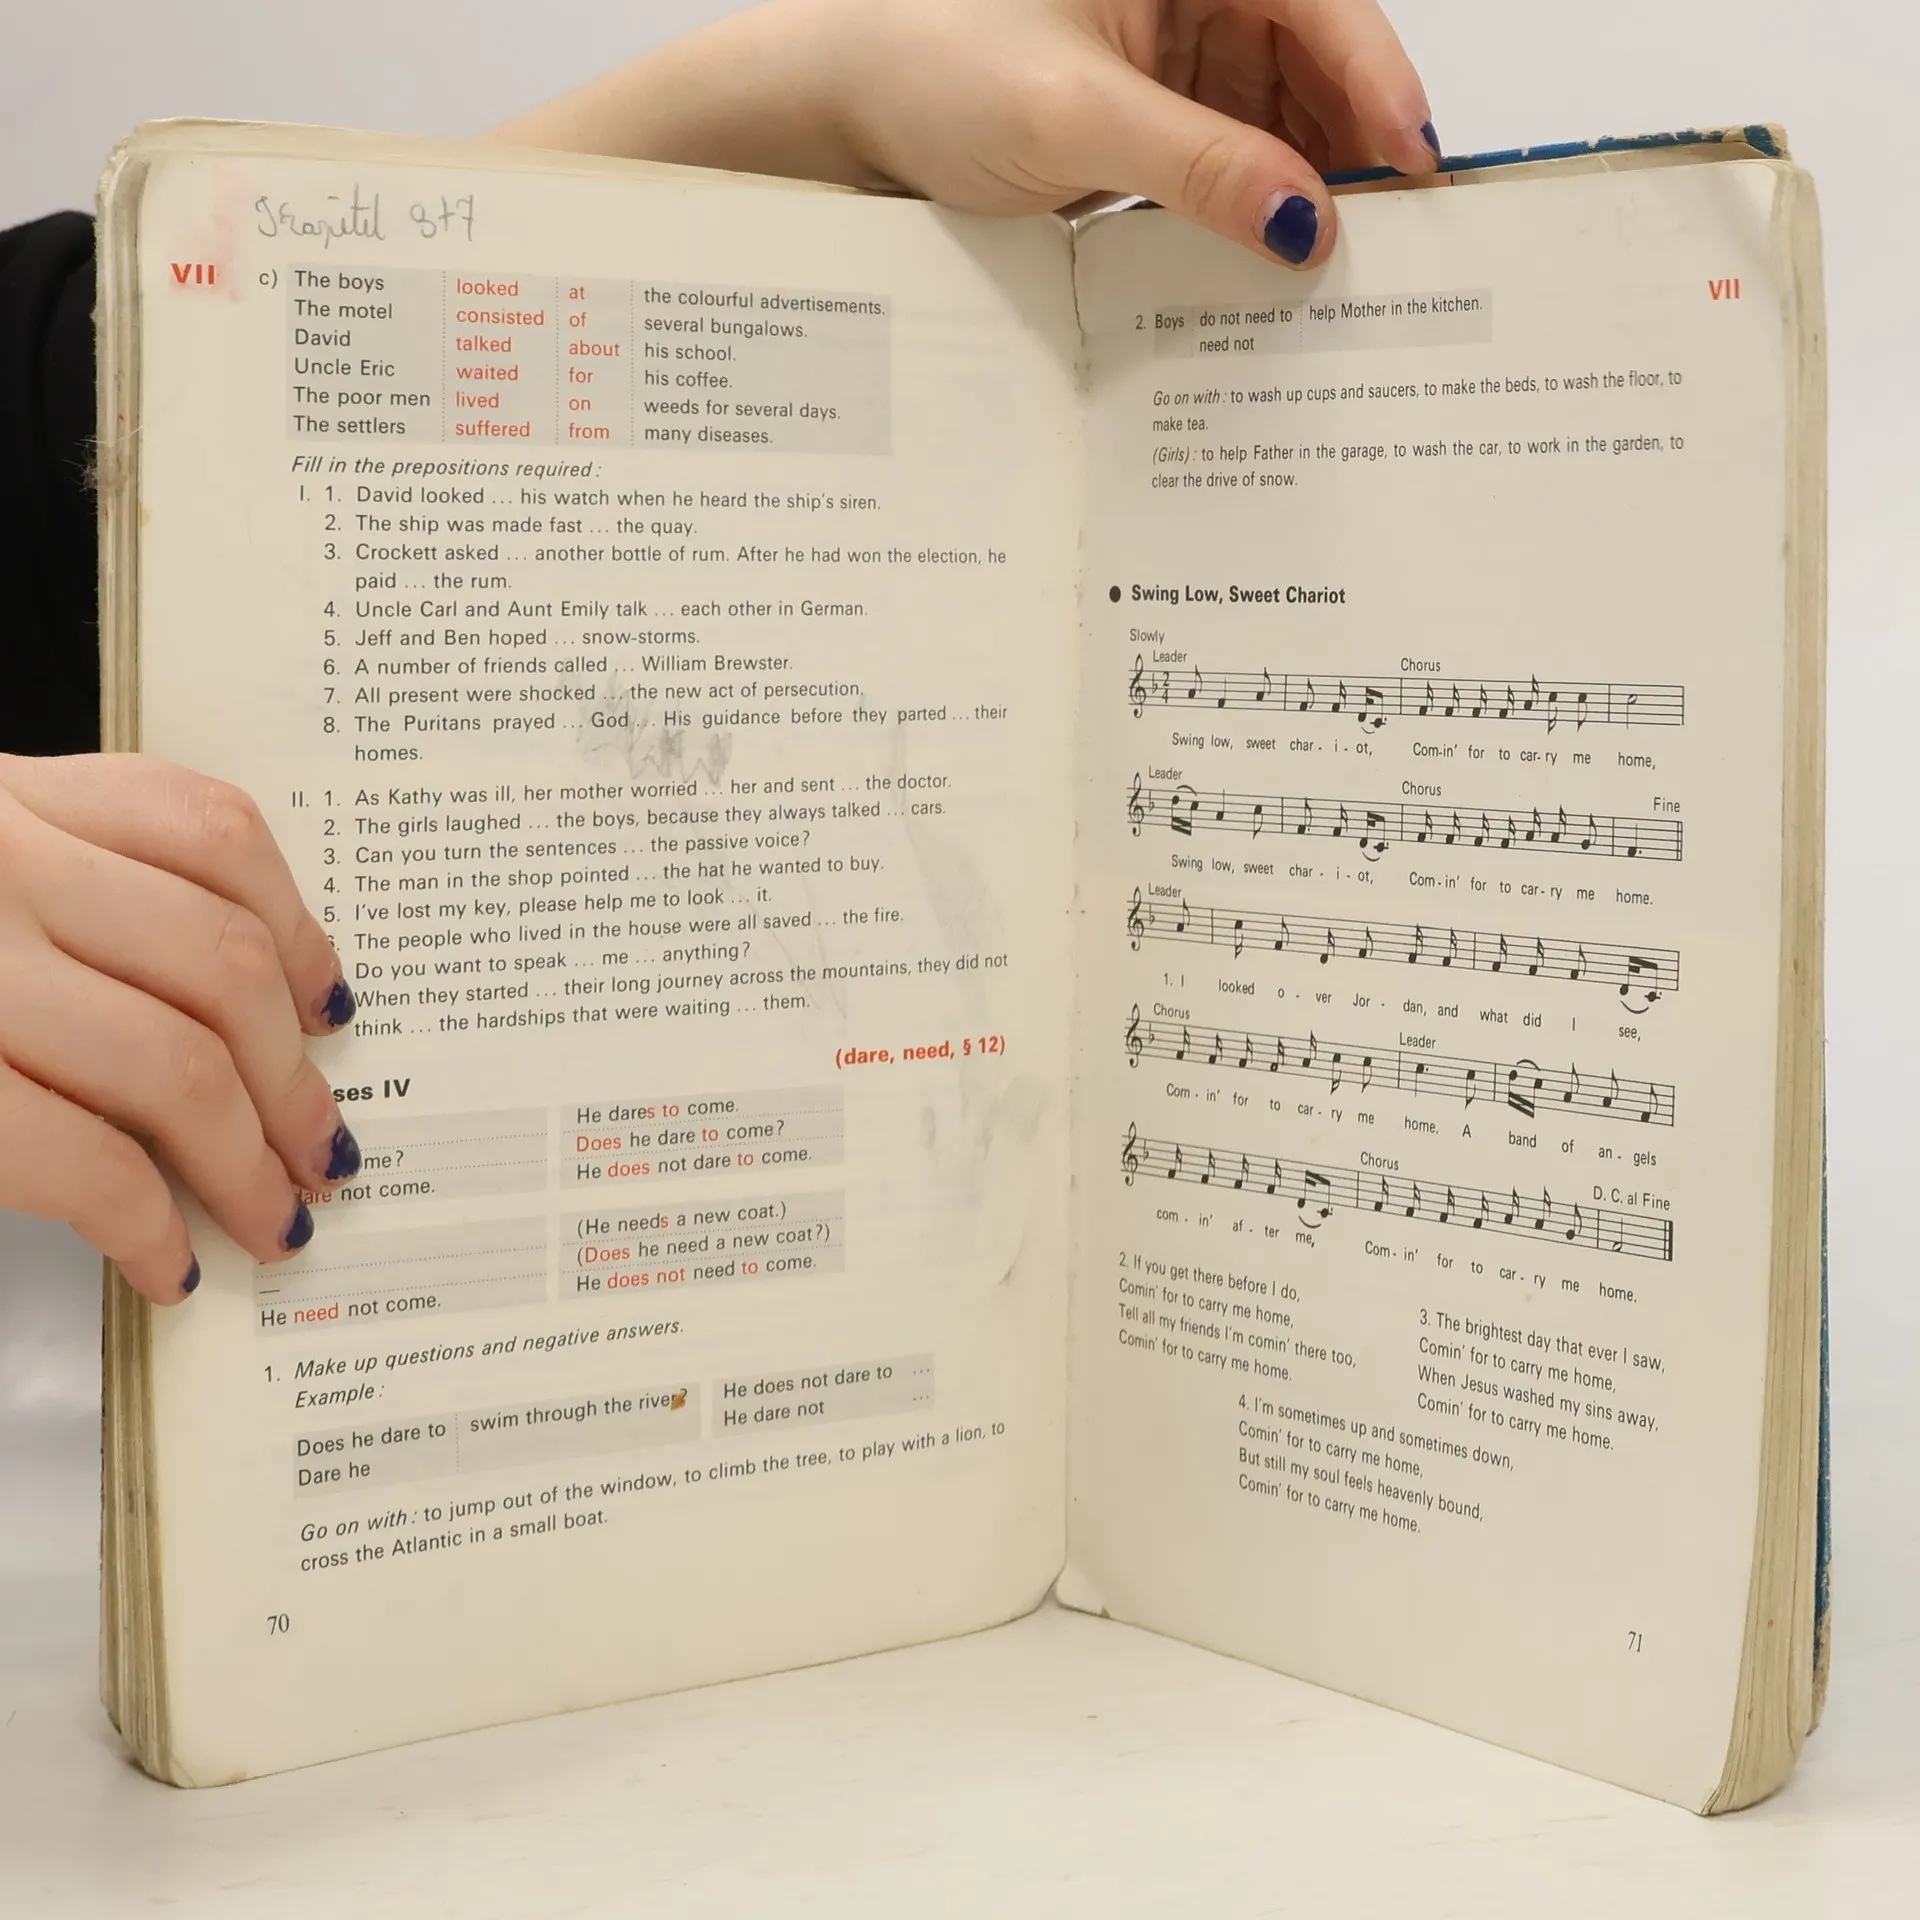 VII
c) The boys looked at the colourful advertisements.
The motel consisted of several bungalows.
David talked about his school.
Uncle Eric waited for his coffee.
The poor men lived on weeds for several days.
The settlers suffered from many diseases.
Fill in the prepositions required:
I. 1. David looked ... his watch when he heard the ship's siren.
2. The ship was made fast ... the quay.
3. Crockett asked ... another bottle of rum. After he had won the election, he
paid ... the rum.
4. Uncle Carl and Aunt Emily talk ... each other in German.
5. Jeff and Ben hoped ... snow-storms.
6. A number of friends called ... William Brewster.
7. All present were shocked ... the new act of persecution.
8. The Puritans prayed ... God ... His guidance before they parted ... their
homes.
II. 1. As Kathy was ill, her mother worried ... her and sent ... the doctor.
2. The girls laughed ... the boys, because they always talked ... cars.
3. Can you turn the sentences ... the passive voice?
4. The man in the shop pointed ... the hat he wanted to buy.
5. I've lost my key, please help me to look ... it.
The people who lived in the house were all saved ... the fire.
Do you want to speak ... me ... anything?
When they started ... their long journey across the mountains, they did not
think ... the hardships that were waiting ... them.
(dare, need, § 12)
ses IV
He dares to come.
me? Does he dare to come?
are not come. He does not dare to come.
(He needs a new coat.)
(Does he need a new coat?)
— He does not need to come.
He need not come.
1. Make up questions and negative answers.
Example:
Does he dare to swim through the river? He does not dare to ...
Dare he He dare not ...
Go on with: to jump out of the window, to climb the tree, to play with a lion, to
cross the Atlantic in a small boat.
70
VII
2. Boys do not need to help Mother in the kitchen.
need not
Go on with: to wash up cups and saucers, to make the beds, to wash the floor, to
make tea.
(Girls): to help Father in the garage, to wash the car, to work in the garden, to
clear the drive of snow.
● Swing Low, Sweet Chariot
Slowly
Leader Chorus
2
4
Swing low, sweet char - i - ot, Com-in' for to car-ry me home,
Leader Chorus Fine
Swing low, sweet char - i - ot, Com-in' for to car-ry me home.
Leader
1. I looked o - ver Jor - dan, and what did I see,
Chorus Leader
Com - in' for to car - ry me home. A band of an - gels
Chorus D. C. al Fine
com - in' af - ter me, Com - in' for to car - ry me home.
2. If you get there before I do,
Comin' for to carry me home,
Tell all my friends I'm comin' there too,
Comin' for to carry me home.
3. The brightest day that ever I saw,
Comin' for to carry me home,
When Jesus washed my sins away,
Comin' for to carry me home.
4. I'm sometimes up and sometimes down,
Comin' for to carry me home,
But still my soul feels heavenly bound,
Comin' for to carry me home.
71